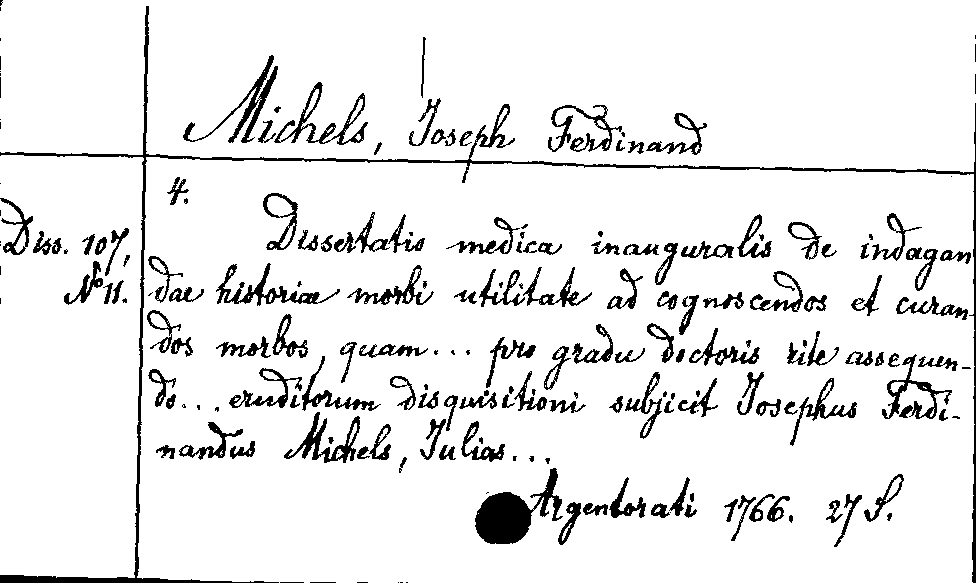 Michels, Joseph Ferdinand
4.
Diss. 107,
No 11.
Dissertatio medica inauguralis de indagan
dae historiae morbi utilitate ad cognoscendos et curan-
dos morbos, quam... pro gradu doctoris rite assequen-
do... eruditorum disquisitioni subjicit Josephus Ferdi-
nandus Michels, Julias...
Argentorati 1766. 27 S.